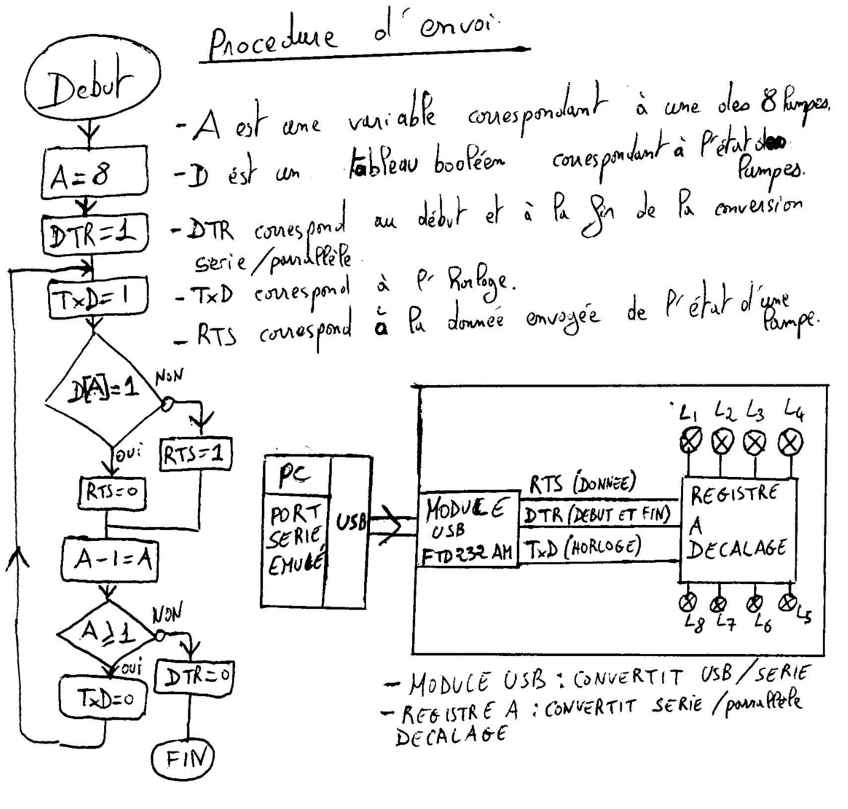 Procedure d'envoi.
Debut
A=8
DTR=1
TxD=1
D[A]=1
NON
oui
RTS=1
RTS=0
A-1=A
A⩾1
NON
oui
DTR=0
TxD=0
FIN
- A est une variable correspondant à une des 8 Pampes.
- D ést un tableau booléen correspondant à l'état des
Pampes.
- DTR correspond au début et à la fin de la conversion
serie/parallèle.
- TxD correspond à l'horloge.
- RTS correspond à la donnée envoyée de l'état d'une
Pampe.
PC
PORT
SERIE
EMULÉ
USB
MODULE
USB
FTD232AM
RTS (DONNEE)
DTR (DEBUT ET FIN)
TxD (HORLOGE)
L1 L2 L3 L4
REGISTRE
A
DECALAGE
L8 L7 L6 L5
- MODULE USB : CONVERTIT USB/SERIE
- REGISTRE A : CONVERTIT SERIE/parallèle
DECALAGE